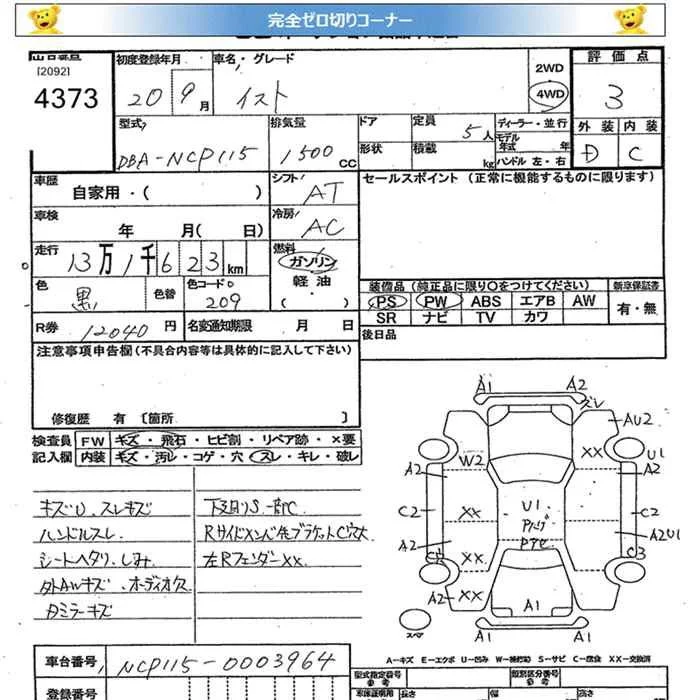 完全ゼロ切りコーナー
出品番号 初度登録年月 車名・グレード 2WD 評価点
[2092]
4373 20年9月 イスト 4WD 3
型式 排気量 ドア 定員 5人 ディーラー・並行 外装 内装
モデル年式 年
DBA-NCP115 1500cc 形状 積載 kg ハンドル左・右 D C
車歴 自家用・( ) シフト AT セールスポイント (正常に機能するものに限ります)
車検 年 月( 日) 冷房 AC
走行 13万1千623km 燃料 ガソリン
色 黒 色替 色コード 209 軽油・( ) 装備品(純正品に限り〇をつけてください) 新車保証書
PS PW ABS エアB AW 有・無
SR ナビ TV カワ
R券 12040円 名変通知期限 月 日 後日品
注意事項申告欄(不具合内容等は具体的に記入して下さい)
修復歴 有 〔箇所 〕
検査員 FW キズ・飛石・ヒビ割・リペア跡・×要
記入欄 内装 キズ・汚レ・コゲ・穴 スレ・キレ・破レ
キズU.スレキズ
ハンドルスレ
シートヘタリ.しみ
外AWキズ.オーディオ欠
カミラーキズ
下廻りS一部C
左RフェンダーXX
A1 A2
ズレ
AU2
XX
W2 U1
A2 A2
C2 XX U1 C2
A2 A2U1
XX C3
A2 XX
A1
スペア A1 A1
A-キズ E-エクボ U-凹み W-補修跡 S-サビ C-腐食 XX-交換済
車台番号 NCP115-0003964
型式指定番号 類別区分番号
登録番号 車庫証明用 長さ 幅 高さ